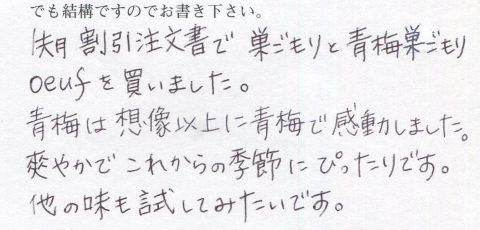 でも結構ですのでお書き下さい。
割引注文書で 巣ごもりと青梅巣ごもり
oeufを買いました。
青梅は想像以上に青梅で感動しました。
爽やかでこれからの季節にぴったりです。
他の味も試してみたいです。